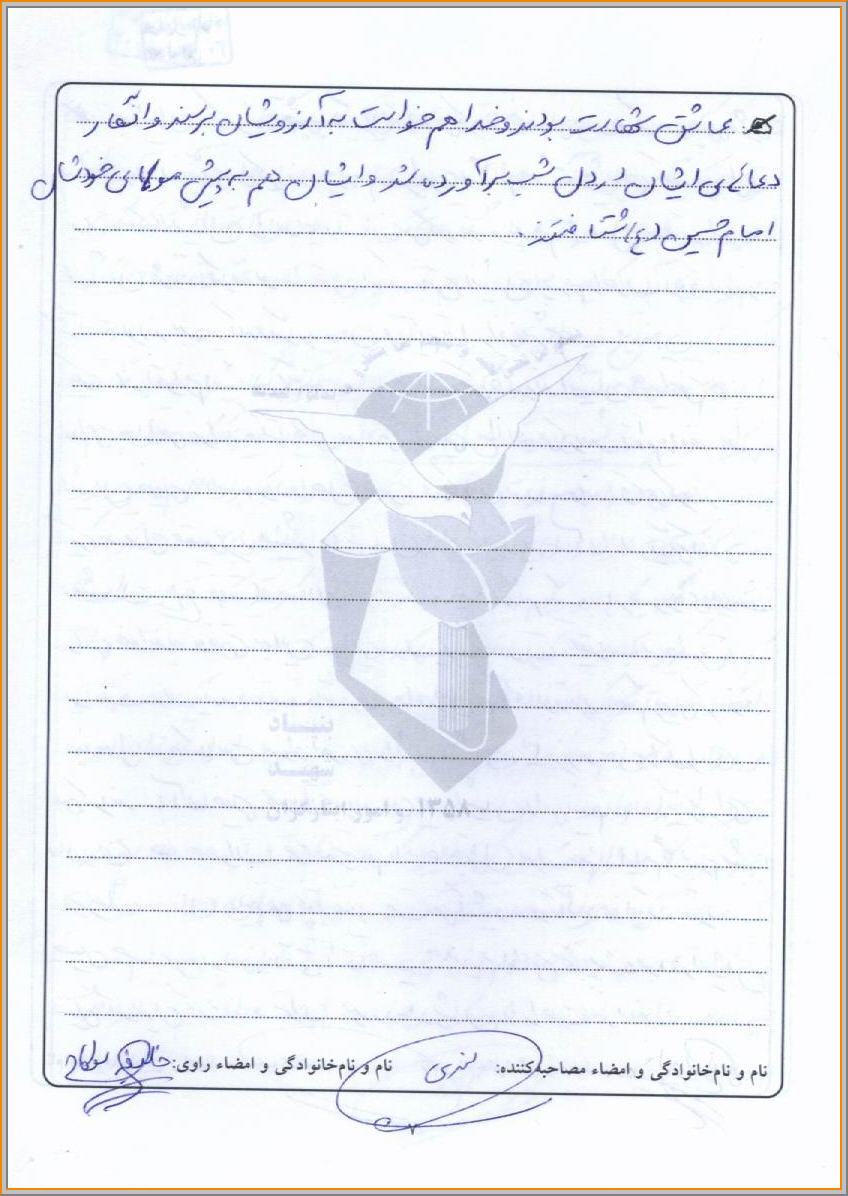 عاشق شهادت بودند و خدا هم خواست به آرزویشان برسند و انگار
دعاهای ایشان در دل شب برآورده شد و ایشان هم به پیش مولای خودشان
امام حسین (ع) شتافتند.
بنیاد
شهید
۱۳۵۸ و امور ایثارگران
نام و نام خانوادگی و امضاء مصاحبه کننده:
نام و نام خانوادگی و امضاء راوی: